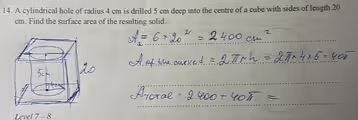 14. A cylindrical hole of radius 4 cm is drilled 5 cm deep into the centre of a cube with sides of length 20
cm. Find the surface area of the resulting solid.
A₂ = 6 × 20² = 2400 cm²
A. of the curved = 2πrh = 2π×4×5 = 40π
5cm
20
A total = 2400 + 40π =
Level 7 – 8